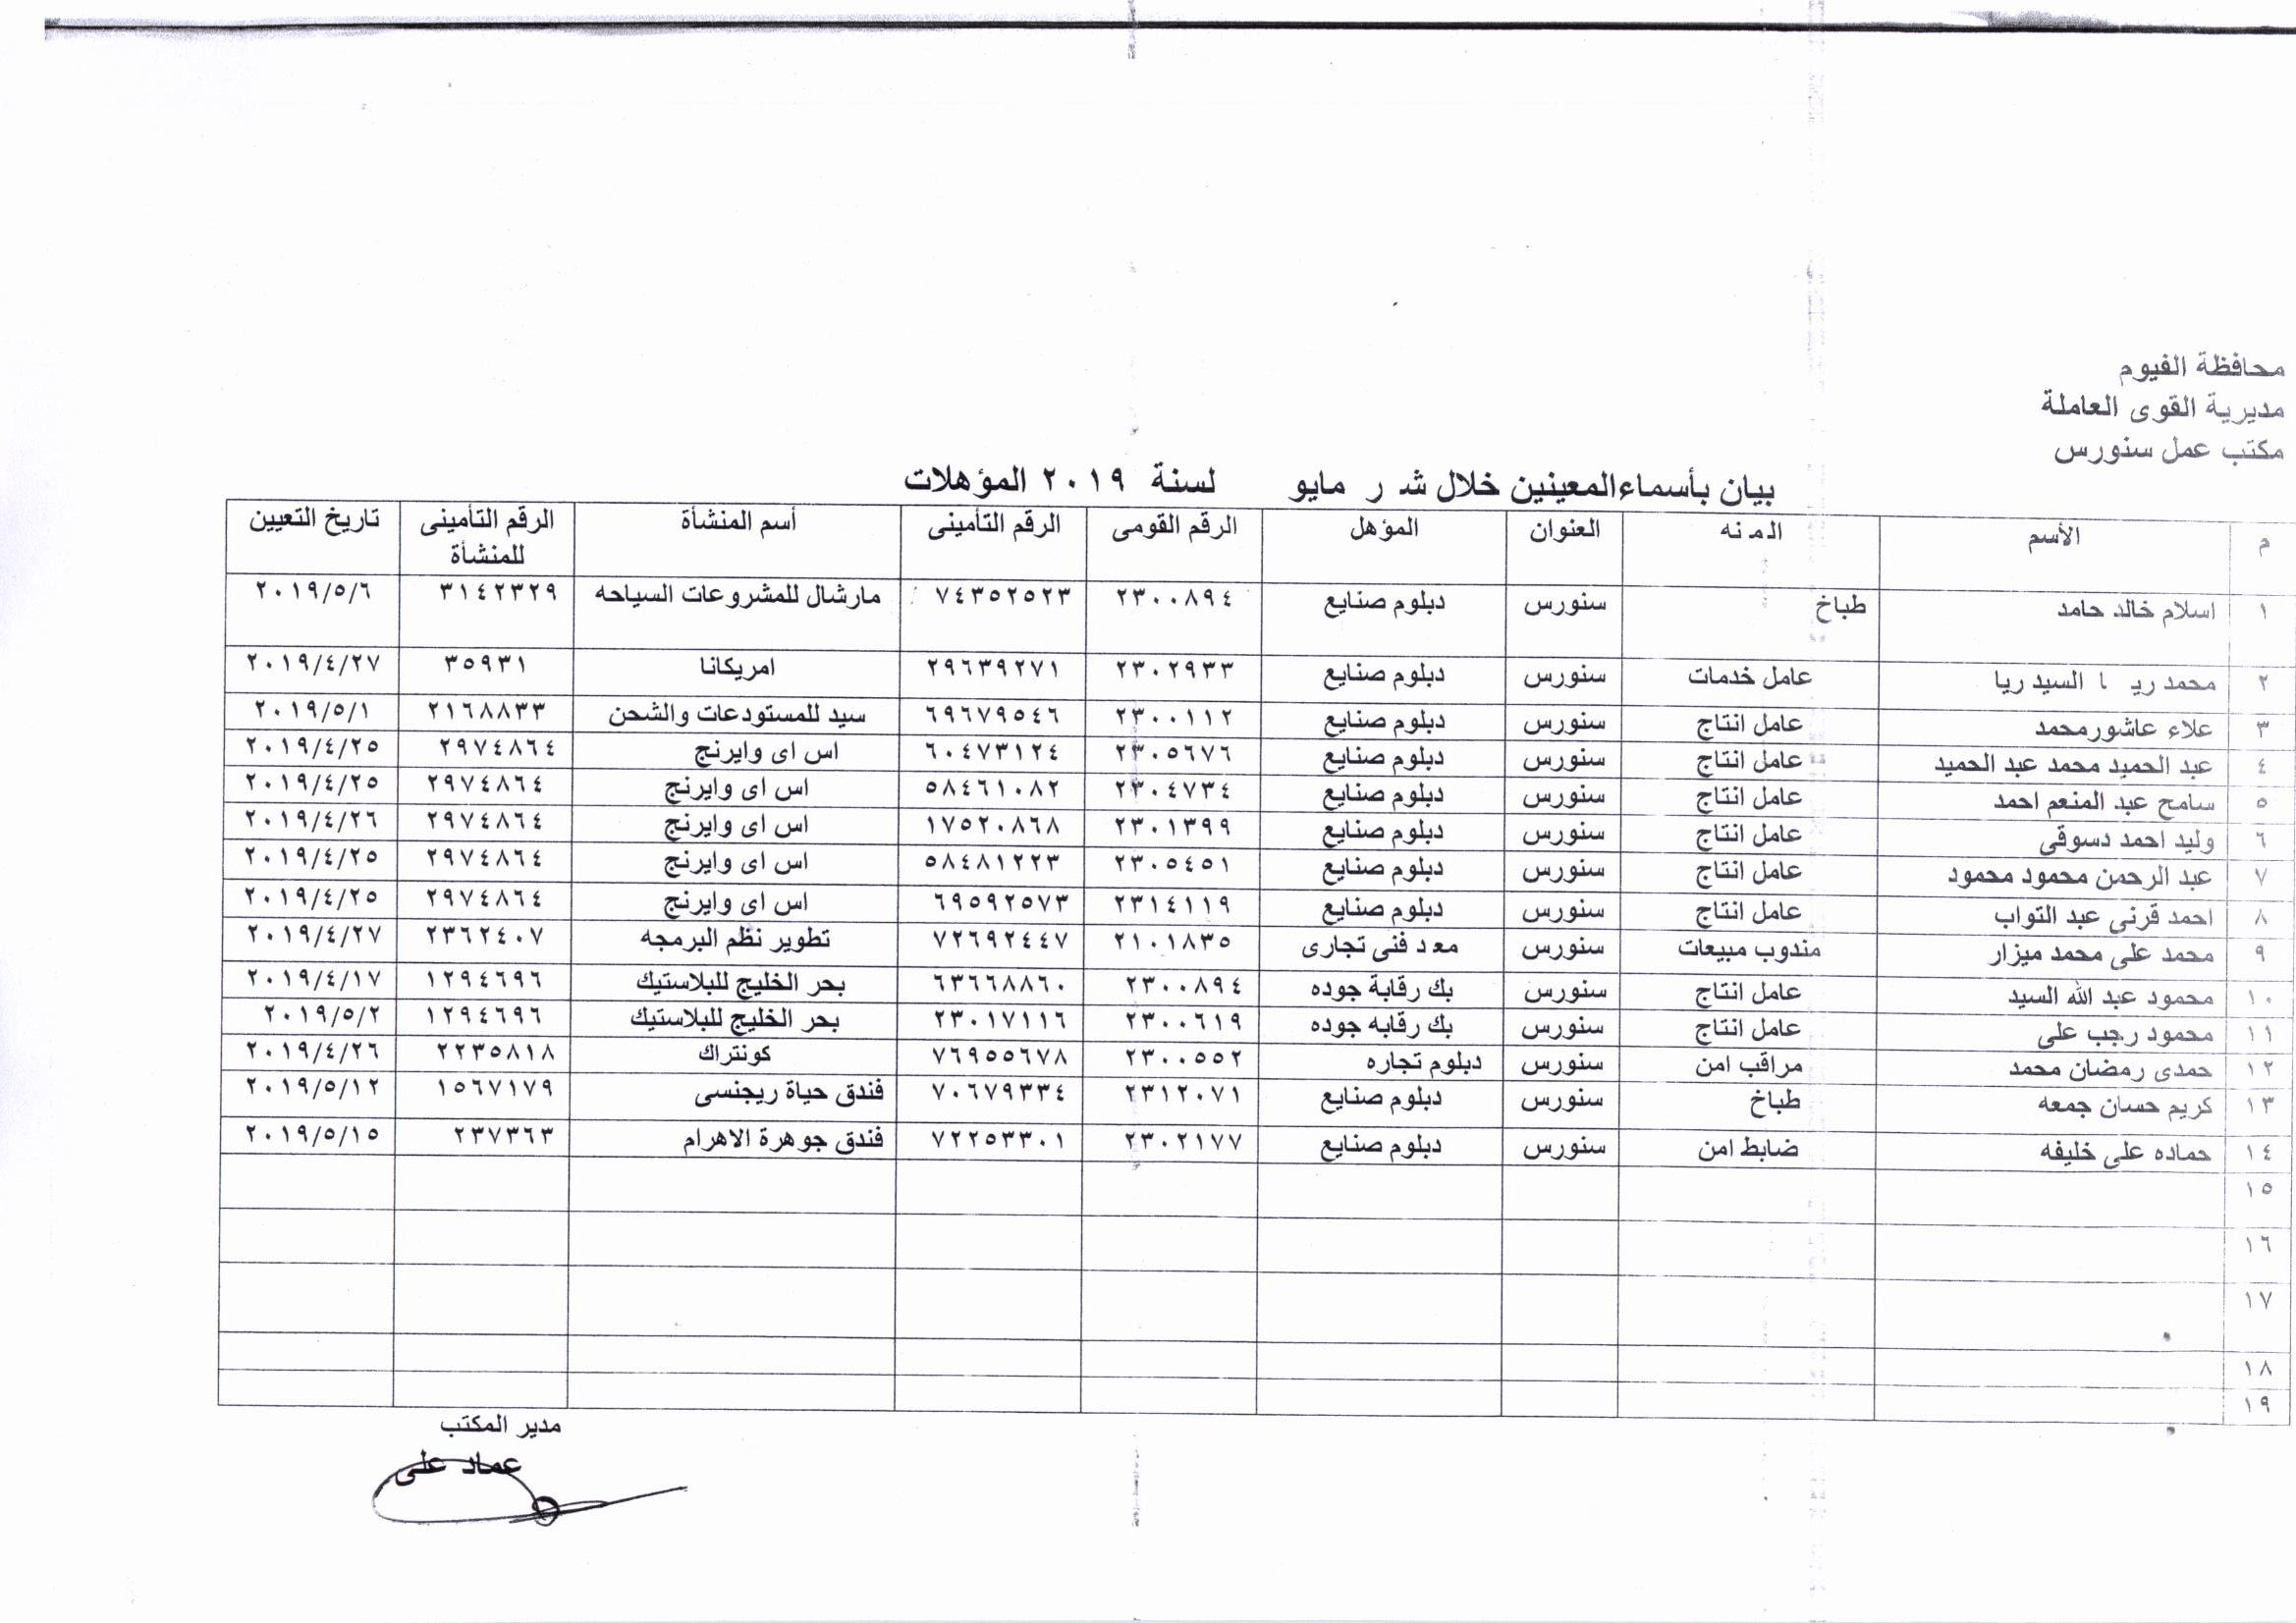 محافظة الفيوم
مديرية القوى العاملة
مكتب عمل سنورس
بيان بأسماءالمعينين خلال ش ر مايو لسنة ٢٠١٩ المؤهلات
م الأسم الم نه العنوان المؤهل الرقم القومى الرقم التأمينى أسم المنشأة الرقم التأمينى للمنشأة تاريخ التعيين
١ اسلام خالد حامد طباخ سنورس دبلوم صنايع ٢٣٠٠٨٩٤ ٧٤٣٥٢٥٢٣ مارشال للمشروعات السياحه ٣١٤٢٣٢٩ ٢٠١٩/٥/٦
٢ محمد ري ا السيد ريا عامل خدمات سنورس دبلوم صنايع ٢٣٠٢٩٣٣ ٢٩٦٣٩٢٧١ امريكانا ٣٥٩٣١ ٢٠١٩/٤/٢٧
٣ علاء عاشورمحمد عامل انتاج سنورس دبلوم صنايع ٢٣٠٠١١٢ ٦٩٦٧٩٥٤٦ سيد للمستودعات والشحن ٢١٦٨٨٣٣ ٢٠١٩/٥/١
٤ عبد الحميد محمد عبد الحميد عامل انتاج سنورس دبلوم صنايع ٢٣٠٥٦٧٦ ٦٠٤٧٣١٢٤ اس اى وايرنج ٢٩٧٤٨٦٤ ٢٠١٩/٤/٢٥
٥ سامح عبد المنعم احمد عامل انتاج سنورس دبلوم صنايع ٢٣٠٤٧٣٤ ٥٨٤٦١٠٨٢ اس اى وايرنج ٢٩٧٤٨٦٤ ٢٠١٩/٤/٢٥
٦ وليد احمد دسوقى عامل انتاج سنورس دبلوم صنايع ٢٣٠١٣٩٩ ١٧٥٢٠٨٦٨ اس اى وايرنج ٢٩٧٤٨٦٤ ٢٠١٩/٤/٢٦
٧ عبد الرحمن محمود محمود عامل انتاج سنورس دبلوم صنايع ٢٣٠٥٤٥١ ٥٨٤٨١٢٢٣ اس اى وايرنج ٢٩٧٤٨٦٤ ٢٠١٩/٤/٢٥
٨ احمد قرنى عبد التواب عامل انتاج سنورس دبلوم صنايع ٢٣١٤١١٩ ٦٩٥٩٢٥٧٣ اس اى وايرنج ٢٩٧٤٨٦٤ ٢٠١٩/٤/٢٥
٩ محمد على محمد ميزار مندوب مبيعات سنورس مع د فنى تجارى ٢١٠١٨٣٥ ٧٢٦٩٢٤٤٧ تطوير نظم البرمجه ٢٣٦٢٤٠٧ ٢٠١٩/٤/٢٧
١٠ محمود عبد الله السيد عامل انتاج سنورس بك رقابة جوده ٢٣٠٠٨٩٤ ٦٣٦٦٨٨٦٠ بحر الخليج للبلاستيك ١٢٩٤٦٩٦ ٢٠١٩/٤/١٧
١١ محمود رجب على عامل انتاج سنورس بك رقابه جوده ٢٣٠٠٦١٩ ٢٣٠١٧١١٦ بحر الخليج للبلاستيك ١٢٩٤٦٩٦ ٢٠١٩/٥/٢
١٢ حمدى رمضان محمد مراقب امن سنورس دبلوم تجاره ٢٣٠٠٥٥٢ ٧٦٩٥٥٦٧٨ كونتراك ٢٢٣٥٨١٨ ٢٠١٩/٤/٢٦
١٣ كريم حسان جمعه طباخ سنورس دبلوم صنايع ٢٣١٢٠٧١ ٧٠٦٧٩٣٣٤ فندق حياة ريجنسى ١٥٦٧١٧٩ ٢٠١٩/٥/١٢
١٤ حماده على خليفه ضابط امن سنورس دبلوم صنايع ٢٣٠٢١٧٧ ٧٢٢٥٣٣٠١ فندق جوهرة الاهرام ٢٣٧٣٦٣ ٢٠١٩/٥/١٥
١٥
١٦
١٧
١٨
١٩
مدير المكتب
عماد على